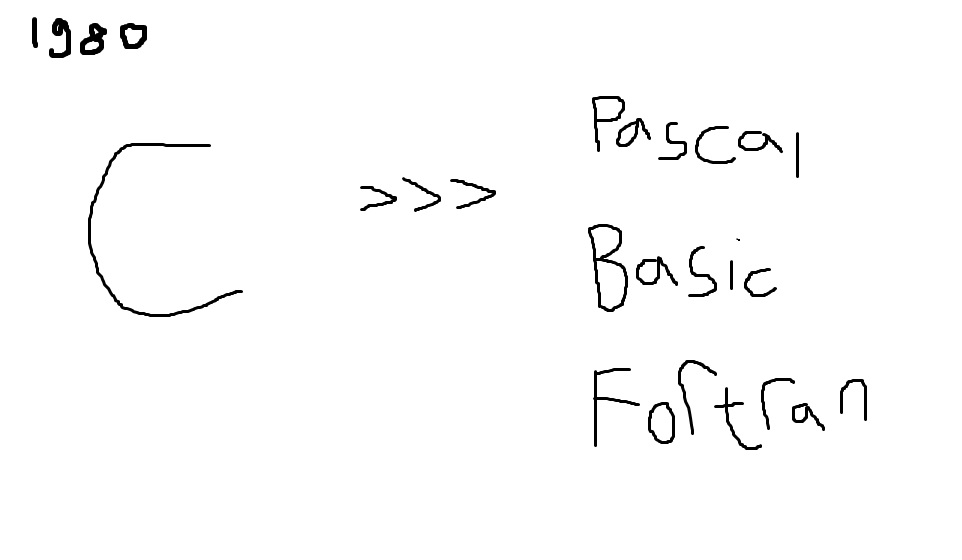 1980
C >>> Pascal
Basic
Fortran